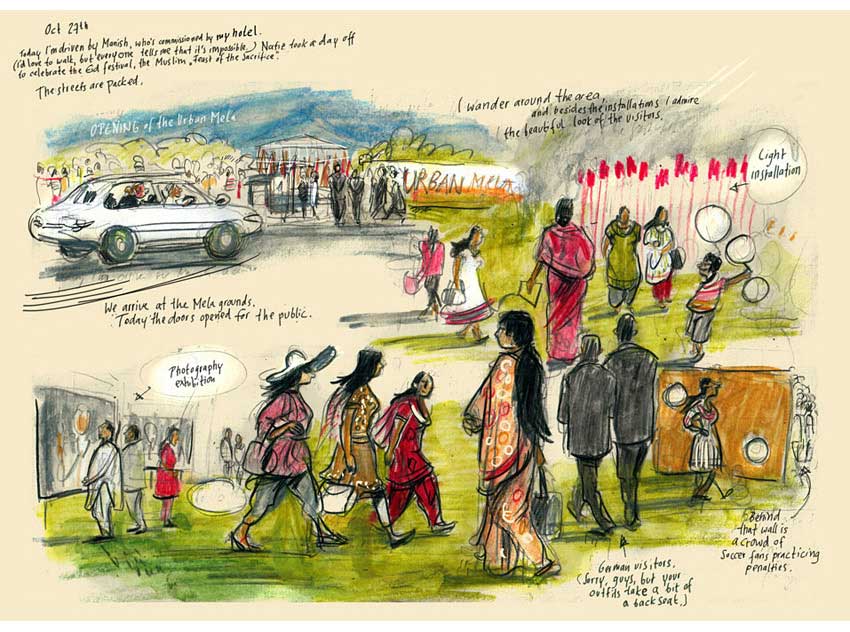 Oct 27th
Today I'm driven by Monish, who's commissioned by my hotel.
(I'd love to walk, but everyone tells me that it's impossible.) Natie took a day off
to celebrate the Eid festival, the Muslim 'Feast of the Sacrifice'.
The streets are packed.
OPENING of the Urban Mela
URBAN MELA
I wander around the area,
and besides the installations I admire
the beautiful look of the visitors.
Light
installation
We arrive at the Mela grounds.
Today the doors opened for the public.
Photography
exhibition
German visitors.
(Sorry, guys, but your
outfits take a bit of
a backseat.)
Behind
that wall is
a crowd of
Soccer fans practicing
penalties.